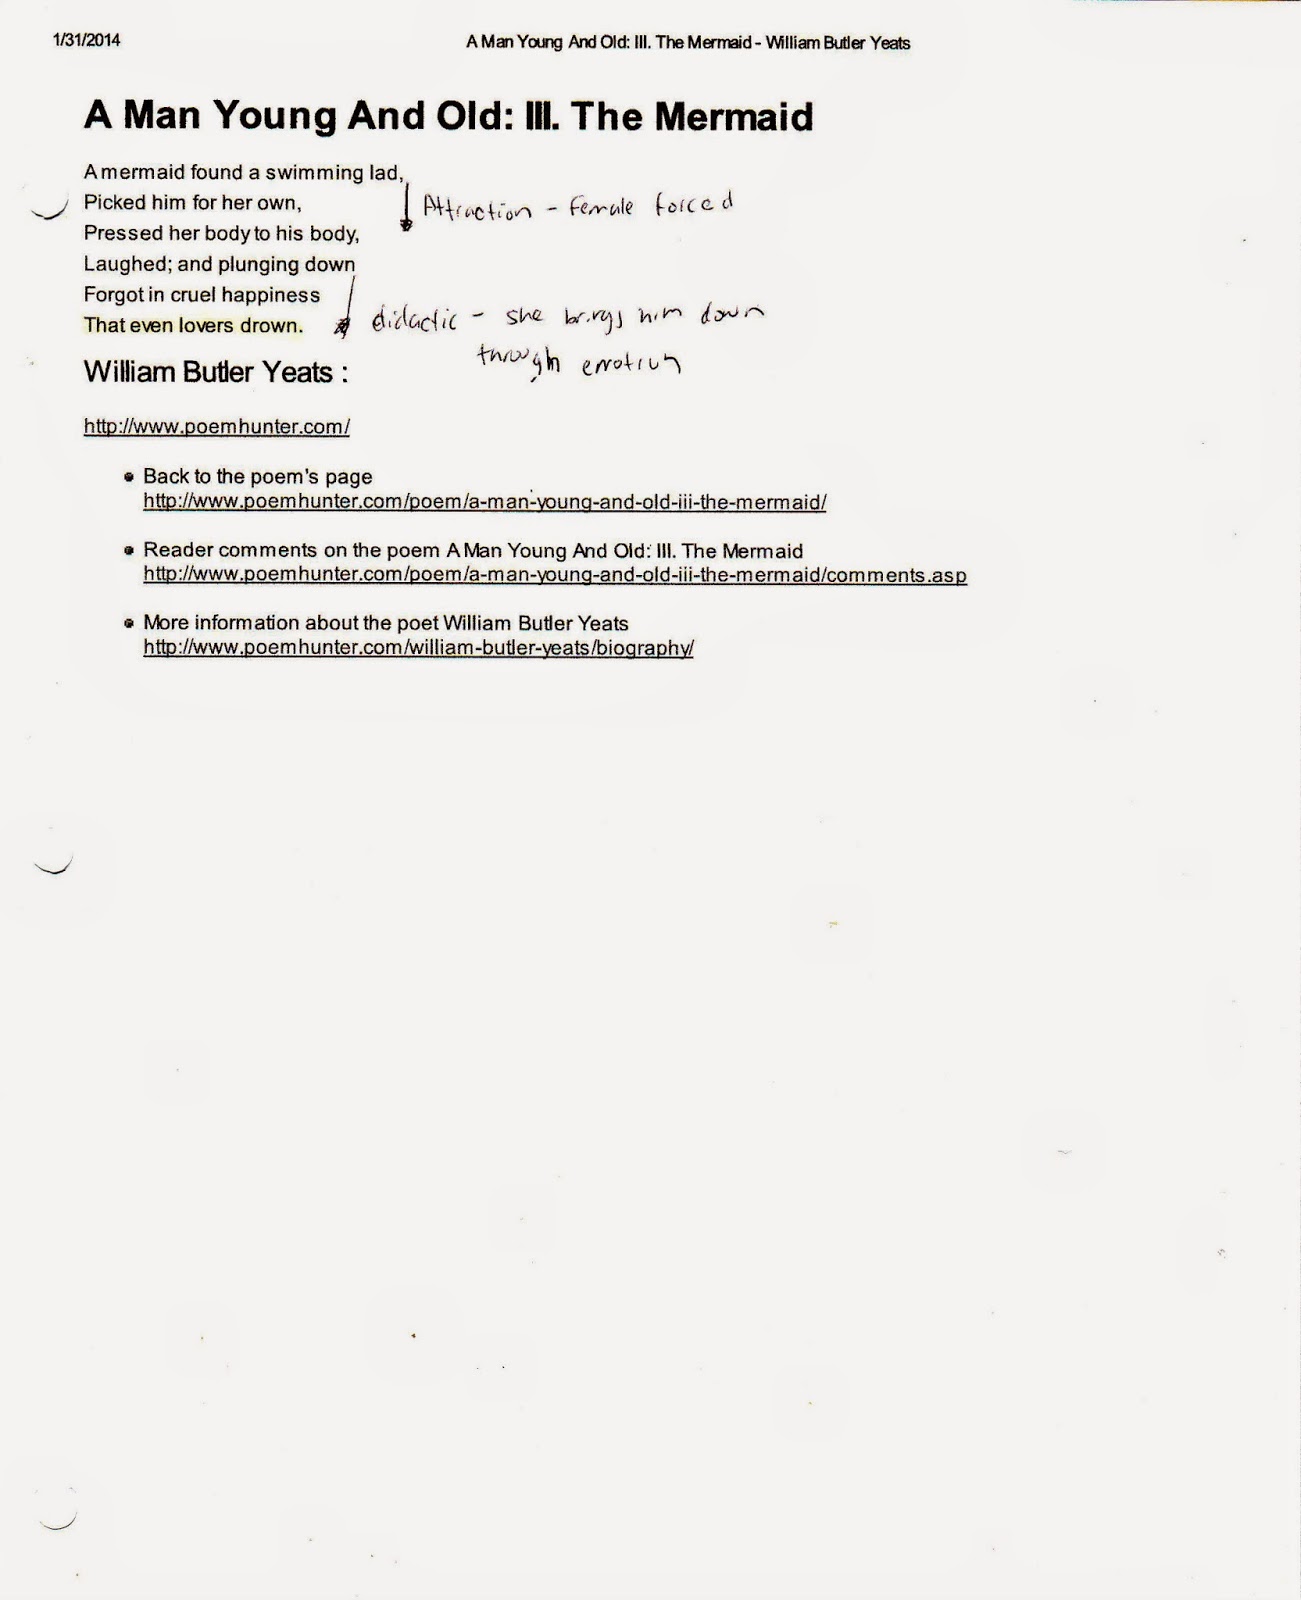 1/31/2014 A Man Young And Old: III. The Mermaid - William Butler Yeats
A Man Young And Old: III. The Mermaid
A mermaid found a swimming lad,
Picked him for her own,
Attraction - Female forced
Pressed her body to his body,
Laughed; and plunging down
Forgot in cruel happiness
That even lovers drown.
didactic - she brings him down
through emotion
William Butler Yeats :
http://www.poemhunter.com/
• Back to the poem's page
http://www.poemhunter.com/poem/a-man-young-and-old-iii-the-mermaid/
• Reader comments on the poem A Man Young And Old: III. The Mermaid
http://www.poemhunter.com/poem/a-man-young-and-old-iii-the-mermaid/comments.asp
• More information about the poet William Butler Yeats
http://www.poemhunter.com/william-butler-yeats/biography/